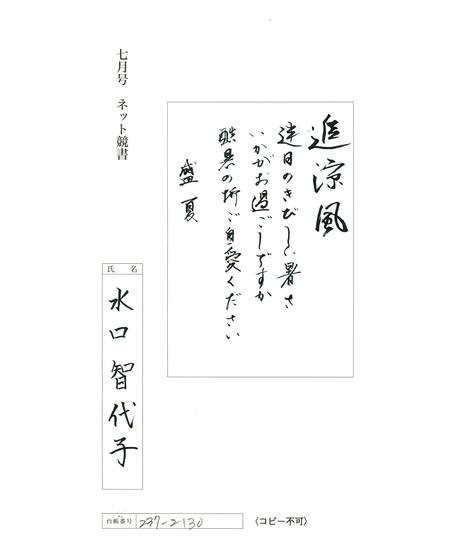 七月号 ネット競書
追涼風
連日のきびしい暑さ
いかがお過ごしですか
酷暑の折ご自愛ください
盛夏
氏名
水口 智代子
台帳番号 237-2130
〈コピー不可〉